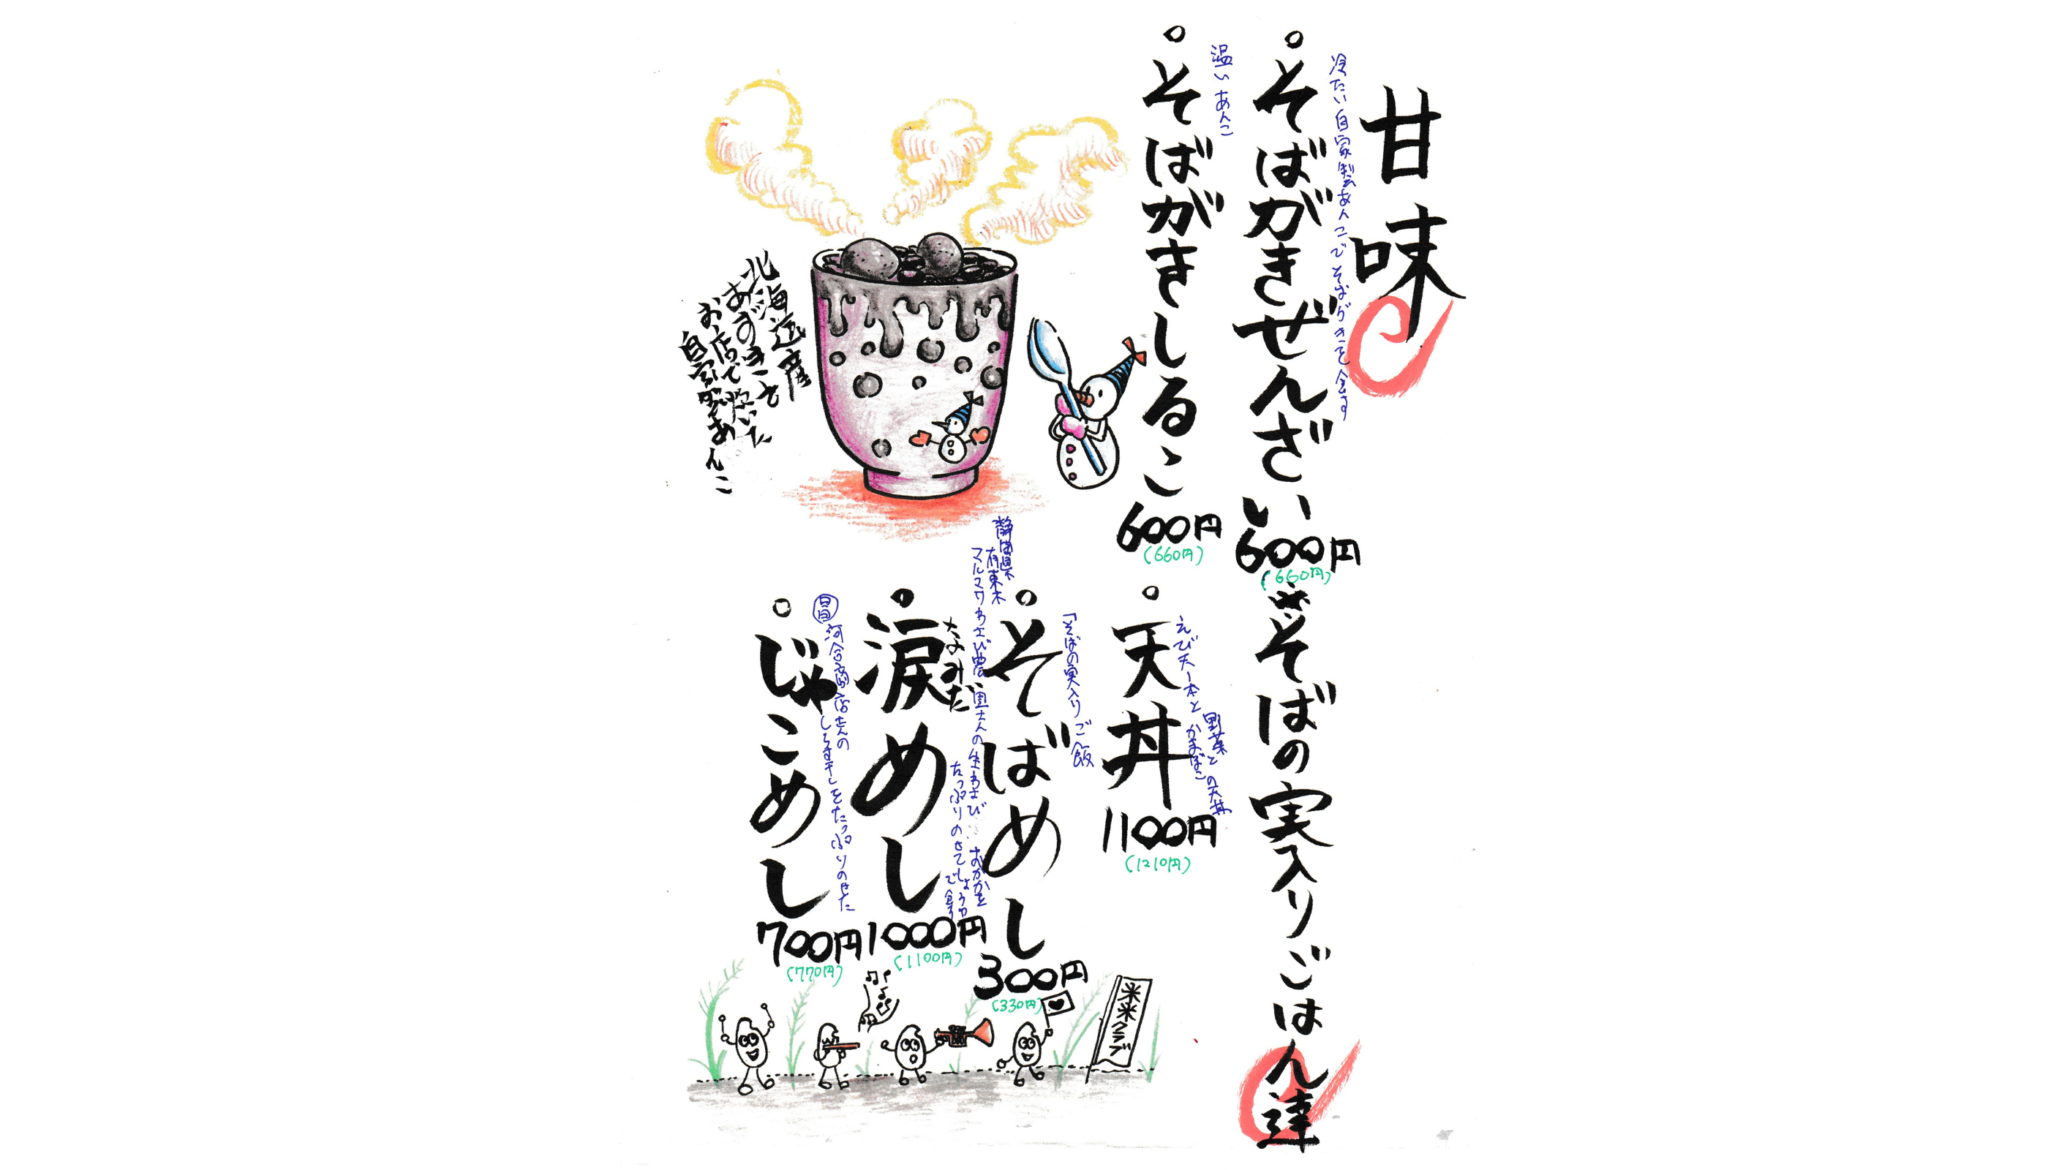 甘味
冷たい自家製あんこでそばがきを食す
そばがきぜんざい
600円
(660円)
温いあんこ
そばがきしるこ
600円
(660円)
北海道産
あずきを
お店で炊いた
自家製あんこ
そばの実入りごはん達
えび天1本と野菜と
かまぼこの天丼
天丼
1100円
(1210円)
「そばの実入りご飯
そばめし
300円
(330円)
静岡県
有東木
マルマワわさび農園さんの生わさび
おかかを
たっぷりのせてしょうゆ
で食す
涙めし
なみだ
1000円
(1100円)
昼
河合商店さんの
しらす干しをたっぷりのせた
じゃこめし
700円
(770円)
米米クラブ